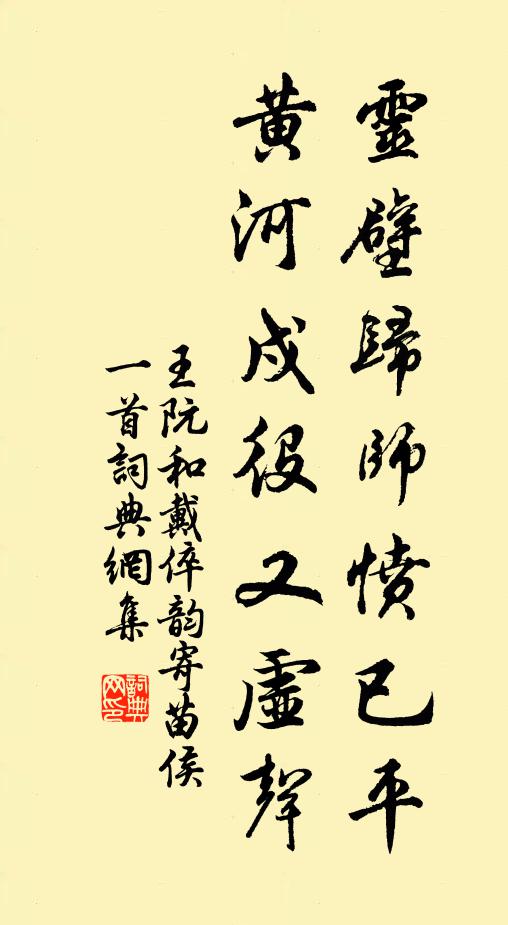 靈壁歸師憤已平
黃河戍役又虛聲
王阮和戴倅韵寄苗侯
一首詞典網集
詞典
网印